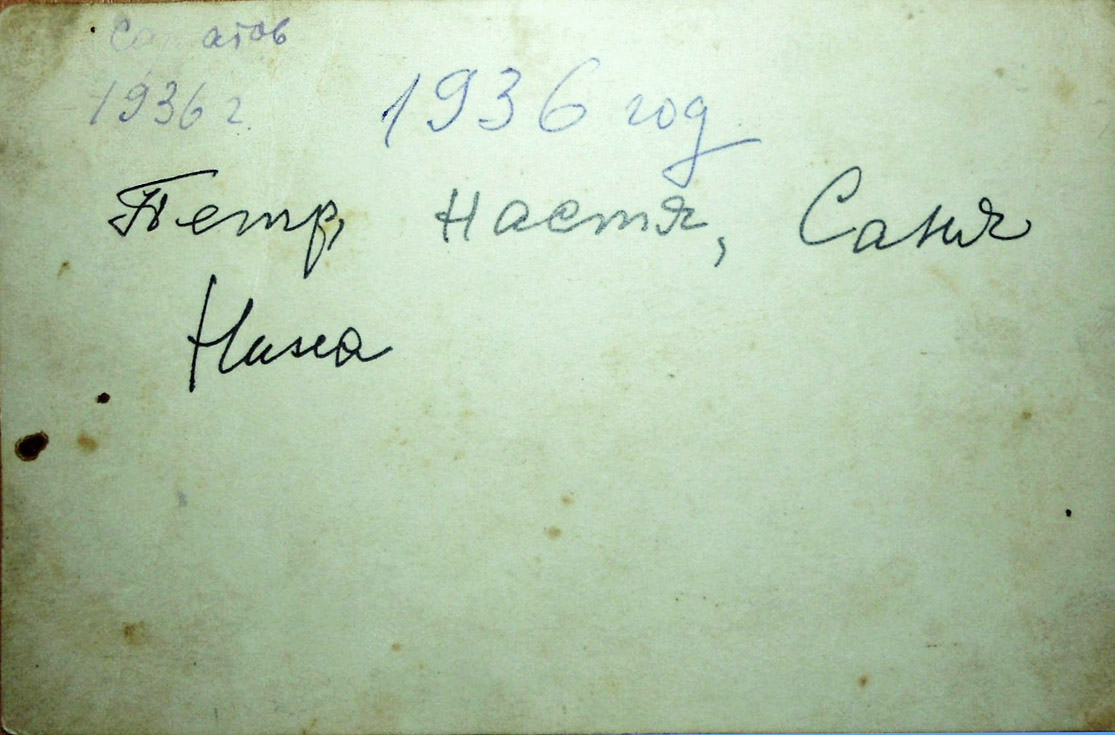 Саратов
1936 г 1936 год
Петр, Настя, Саня
Нина